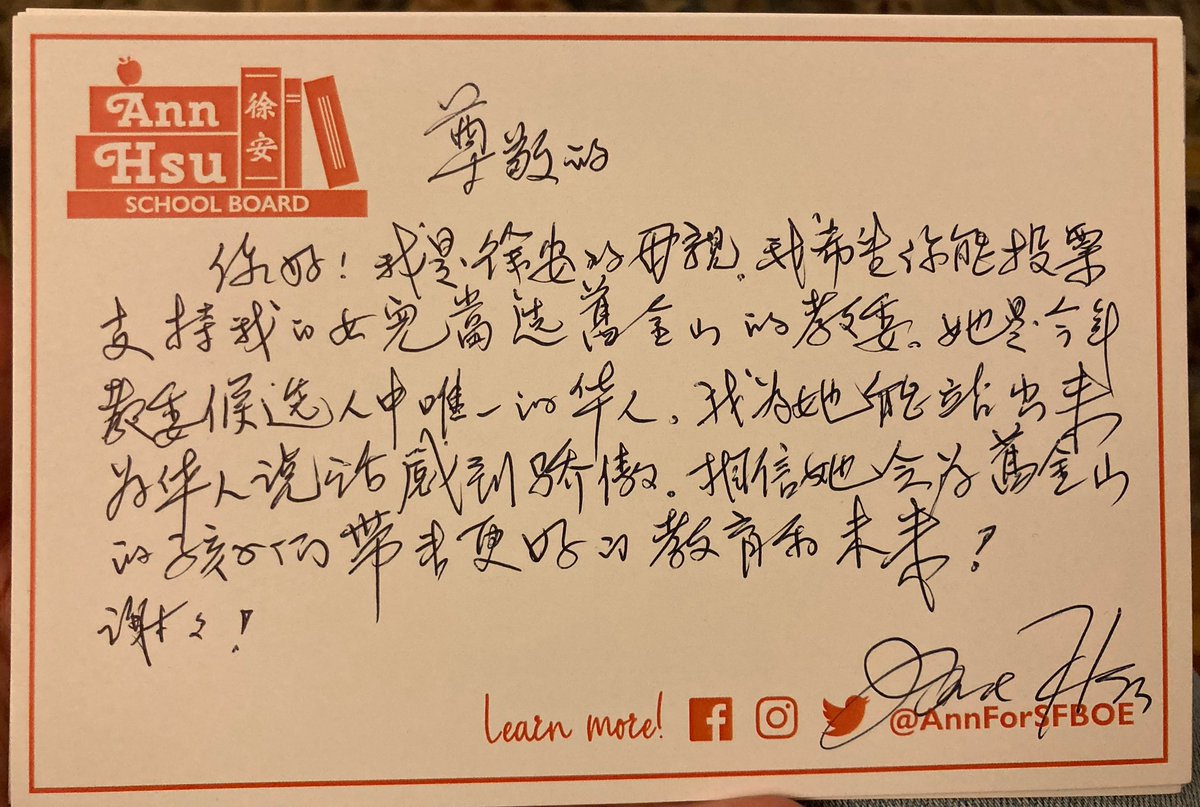 Ann
Hsu
徐安
SCHOOL BOARD
尊敬的
你好！我是徐安的母親。我希望你能投票
支持我的女兒當选舊金山的教委。她是今年
教委候选人中唯一的华人。我为她能站出来
为华人说话感到骄傲。相信她会为舊金山
的孩子们带来更好的教育和未来！
谢谢！
Jane Hsu
Learn more!
@AnnForSFBOE